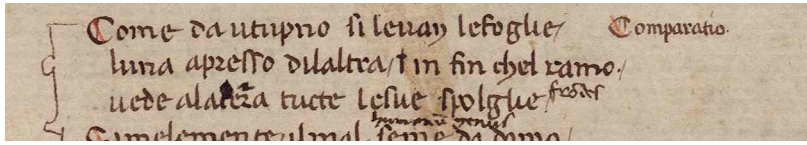 Come da utupno si leuan le foglie / Comparatio.
luna apresso dilaltra / in fin chel ramo /
uede ala terra tucte le sue spolglie / frondes
humanum genus
Similemente il mal seme da damo /